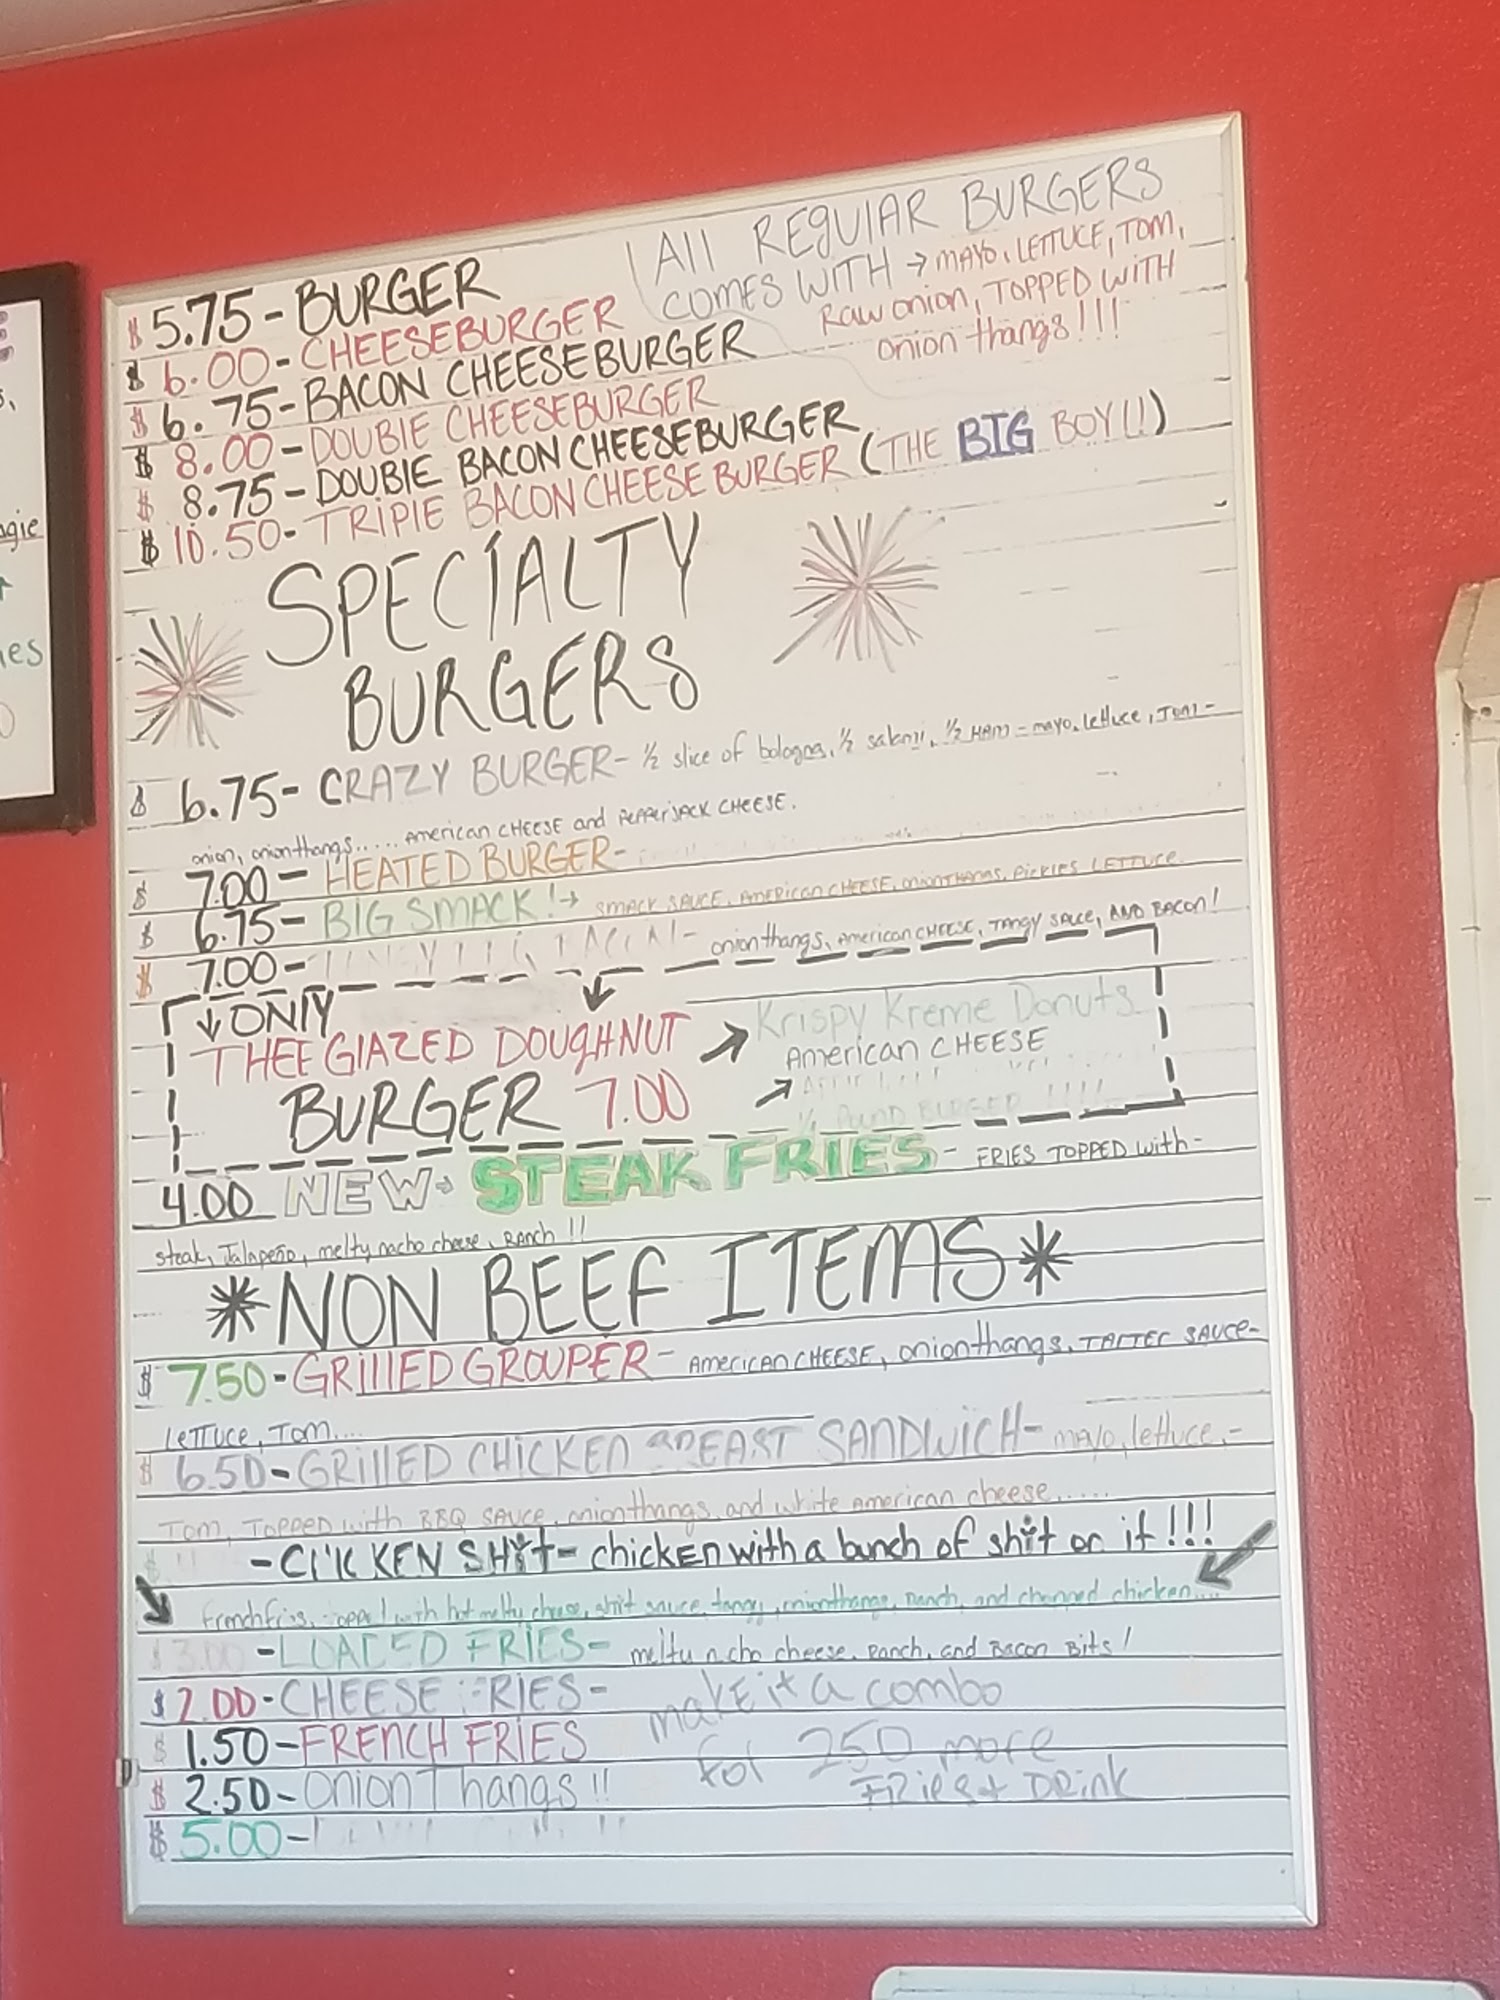 All REGULAR BURGERS
COMES WITH → MAYO, LETTUCE, TOM,
Raw onion, TOPPED WITH
onion thangs!!!
$ 5.75 - BURGER
$ 6.00 - CHEESEBURGER
$ 6.75 - BACON CHEESEBURGER
$ 8.00 - DOUBLE CHEESEBURGER
$ 8.75 - DOUBLE BACON CHEESEBURGER
$ 10.50 - TRIPLE BACON CHEESE BURGER (THE BIG BOY!!)
SPECIALTY
BURGERS
$ 6.75 - CRAZY BURGER - 1/2 slice of bologna, 1/2 salami, 1/2 HAM - mayo, lettuce, TOM -
onion, onionthangs..... American CHEESE and PEPPERJACK CHEESE.
$ 7.00 - HEATED BURGER -
$ 6.75 - BIG SMACK! → SMACK SAUCE, AMERICAN CHEESE, onionthangs, Pickles LETTUCE
$ 7.00 - onionthangs, American CHEESE, TANGY SAUCE, AND BACON!
↓ ONLY
THEE GLAZED DOUGHNUT → Krispy Kreme Donuts
American CHEESE
BURGER 7.00 →
1/2 POUND BURGER !!!!
4.00 NEW → STEAK FRIES - FRIES TOPPED with -
steak, Jalapeño, melty nacho cheese, RANCH !!
*NON BEEF ITEMS*
$ 7.50 - GRILLED GROUPER - AMERICAN CHEESE, onionthangs, TARTER SAUCE -
LETTUCE, TOM....
$ 6.50 - GRILLED CHICKEN BREAST SANDWICH - mayo, lettuce, -
TOM, TOPPED with BBQ SAUCE, onionthangs, and white American cheese.....
$ - CHICKEN SH*T - chicken with a bunch of sh*t on it!!!
Frenchfries, topped with hot melty cheese, sh*t sauce, tangy, onionthangs, Ranch, and chopped chicken....
$ 3.00 - LOADED FRIES - melty nacho cheese, Ranch, and Bacon Bits!
$ 2.00 - CHEESE FRIES -
$ 1.50 - FRENCH FRIES
$ 2.50 - Onion Thangs!!
$ 5.00 -
make it a combo
for 2.50 more
FRIES + DRINK